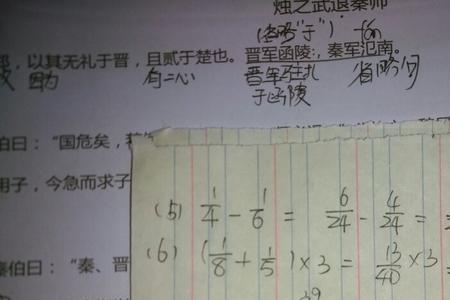 烛之武退秦师
(省略"于") fán
以其无礼于晋，且贰于楚也。晋军函陵，秦军氾南。
因为 有二心 晋军驻扎 省略句
于函陵
伯曰："国危矣，
用子，今急而求子
秦伯曰："秦、晋
(5) 1/4 - 1/6 = 6/24 - 4/24 =
(6) (1/8 + 1/5) × 3 = 13/40 × 3 =
39